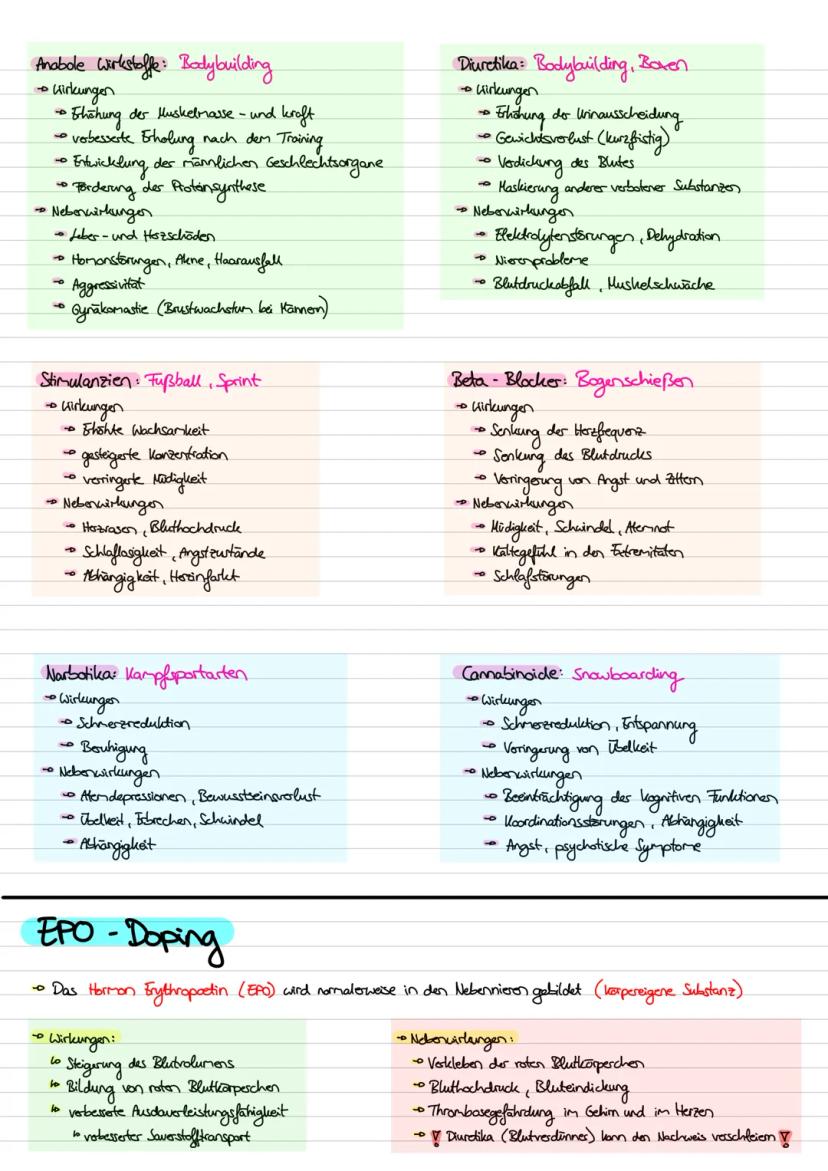 Anabole Wirkstoffe: Bodybuilding
→ Wirkungen
→ Erhöhung der Muskelmasse - und kraft
→ verbesserte Erholung nach dem Training
→ Entwicklung der männlichen Geschlechtsorgane
→ Förderung der Proteinsynthese
→ Nebenwirkungen
→ Leber - und Herzschäden
→ Hormonstörungen, Akne, Haarausfall
→ Aggressivität
→ Gynäkomastie (Brustwachstum bei Männern)
Diuretika: Bodybuilding, Boxen
→ Wirkungen
→ Erhöhung der Urinausscheidung
→ Gewichtsverlust (kurzfristig)
→ Verdickung des Blutes
→ Maskierung anderer verbotener Substanzen
→ Nebenwirkungen
→ Elektrolytenstörungen, Dehydration
→ Nierenprobleme
→ Blutdruckabfall, Muskelschwäche
Stimulanzien: Fußball, Sprint
→ Wirkungen
→ Erhöhte Wachsamkeit
→ gesteigerte Konzentration
→ verringerte Müdigkeit
→ Nebenwirkungen
→ Herzrasen, Bluthochdruck
→ Schlaflosigkeit, Angstzustände
→ Abhängigkeit, Herzinfarkt
Beta - Blocker: Bogenschießen
→ Wirkungen
→ Senkung der Herzfrequenz
→ Senkung des Blutdrucks
→ Verringerung von Angst und Zittern
→ Nebenwirkungen
→ Müdigkeit, Schwindel, Atemnot
→ Kältegefühl in den Extremitäten
→ Schlafstörungen
Narbotika: Kampfsportarten
→ Wirkungen
→ Schmerzreduktion
→ Beruhigung
→ Nebenwirkungen
→ Atemdepressionen, Bewusstseinsverlust
→ Übelkeit, Erbrechen, Schwindel
→ Abhängigkeit
Cannabinoide: Snowboarding
→ Wirkungen
→ Schmerzreduktion, Entspannung
→ Verringerung von Übelkeit
→ Nebenwirkungen
→ Beeinträchtigung der kognitiven Funktionen
→ Koordinationsstörungen, Abhängigkeit
→ Angst, psychotische Symptome
EPO - Doping
→ Das Hormon Erythropoetin (EPO) wird normalerweise in den Nebennieren gebildet (körpereigene Substanz)
→ Wirkungen:
↳ Steigerung des Blutvolumens
↳ Bildung von roten Blutkörperschen
↳ verbesserte Ausdauerleistungsfähigkeit
↳ verbesserter Sauerstofftransport
→ Nebenwirkungen:
→ Verkleben der roten Blutkörperchen
→ Bluthochdruck, Bluteindickung
→ Thrombosegefährdung im Gehirn und im Herzen
→ ! Diuretika (Blutverdünner) kann den Nachweis verschleiern !